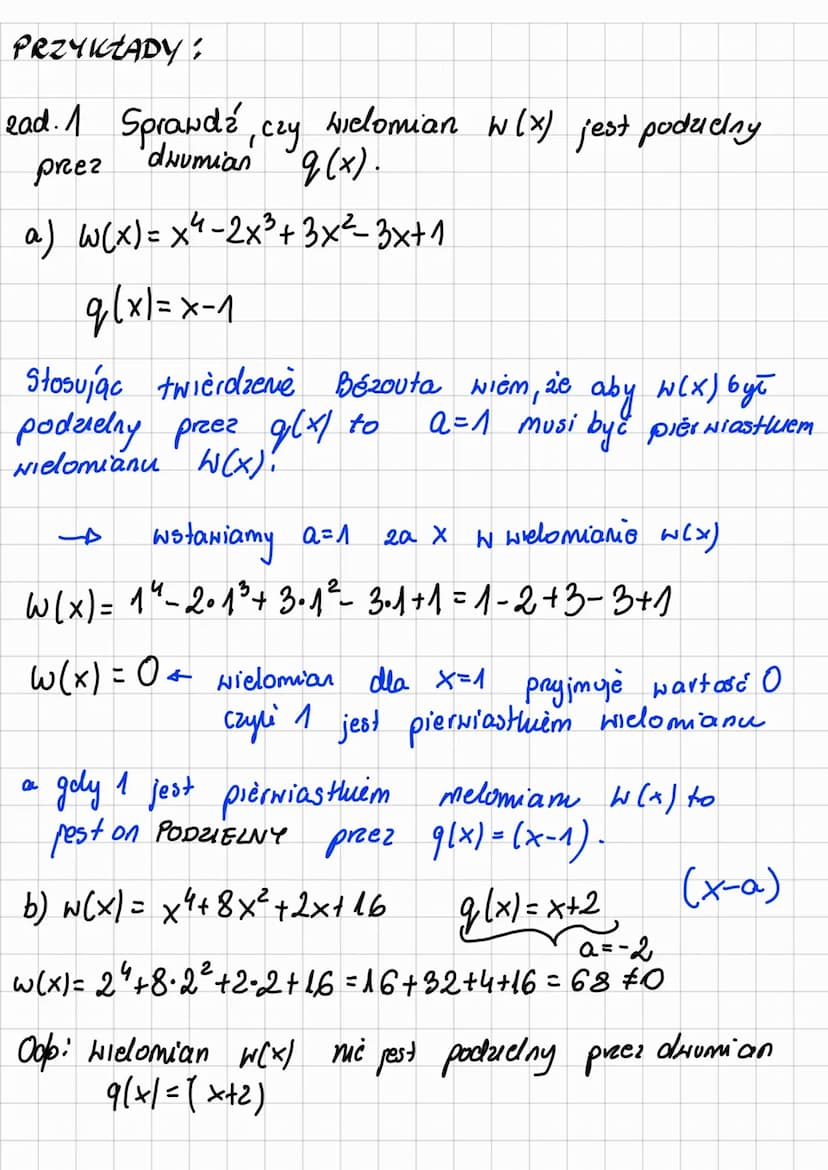 PRZYKŁADY:
zad.1 Sprawdź, czy wielomian W(x) jest podzielny
przez dwumian q(x).
a) W(x) = x⁴-2x³+3x²-3x+1
q(x) = x-1
Stosując twierdzenie Bézouta wiem, że aby W(x) był
podzielny przez q(x) to a=1 musi być pierwiastkiem
wielomianu W(x).
→ wstawiamy a=1 za x w wielomianie w(x)
W(x) = 1⁴-2•1³+3•1²-3•1+1 = 1-2+3-3+1
W(x) = 0 ← wielomian dla x=1 przyjmuje wartość 0
czyli 1 jest pierwiastkiem wielomianu
a gdy 1 jest pierwiastkiem wielomianu W(x) to
jest on PODZIELNY przez q(x) = (x-1).
(x-a)
b) w(x) = x⁴+8x²+2x+16 q(x) = x+2
a=-2
w(x) = 2⁴+8•2²+2•2+16 = 16+32+4+16 = 68 ≠0
Odp: wielomian w(x) nie jest podzielny przez dwumian
q(x) = (x+2)